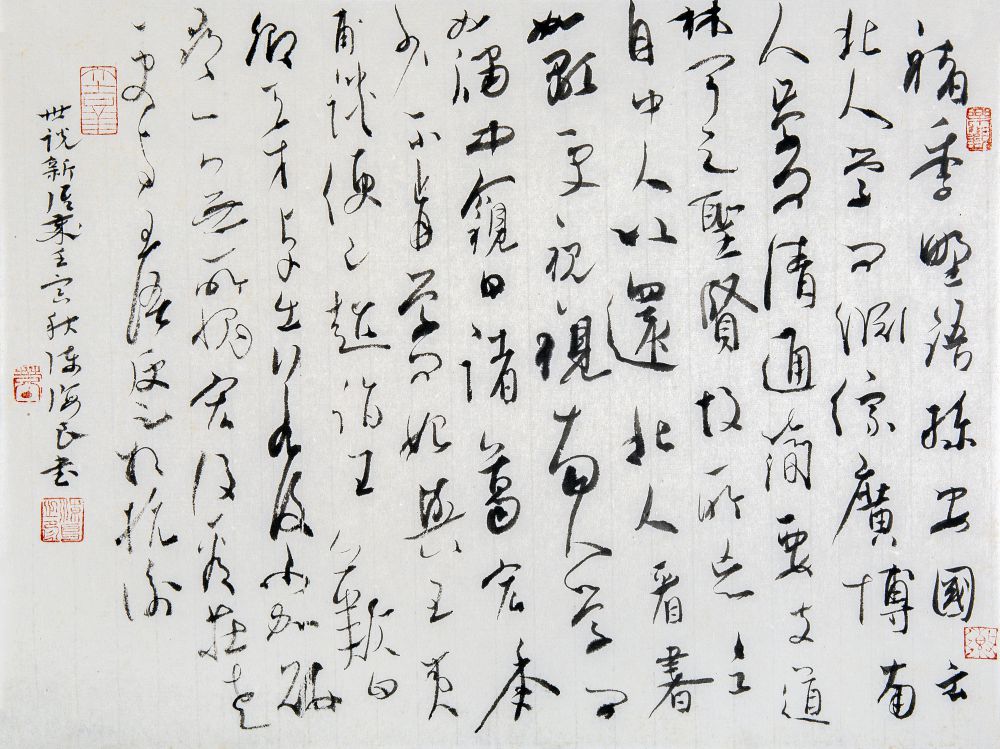 褚季野語孫安國云
北人學問淵綜廣博南
人學問清通簡要支道
林聞之聖賢故所忘言
自中人以還北人看書
如顯處視南人學問
如牖中窺日諸葛宏年
少不肯學問始與王夷
甫談便已超詣王歎曰
卿天才卓出若復小加研
尋一無所愧宏後看莊老
更與王語便足相抗衡
世说新语壬寅秋陈海良书